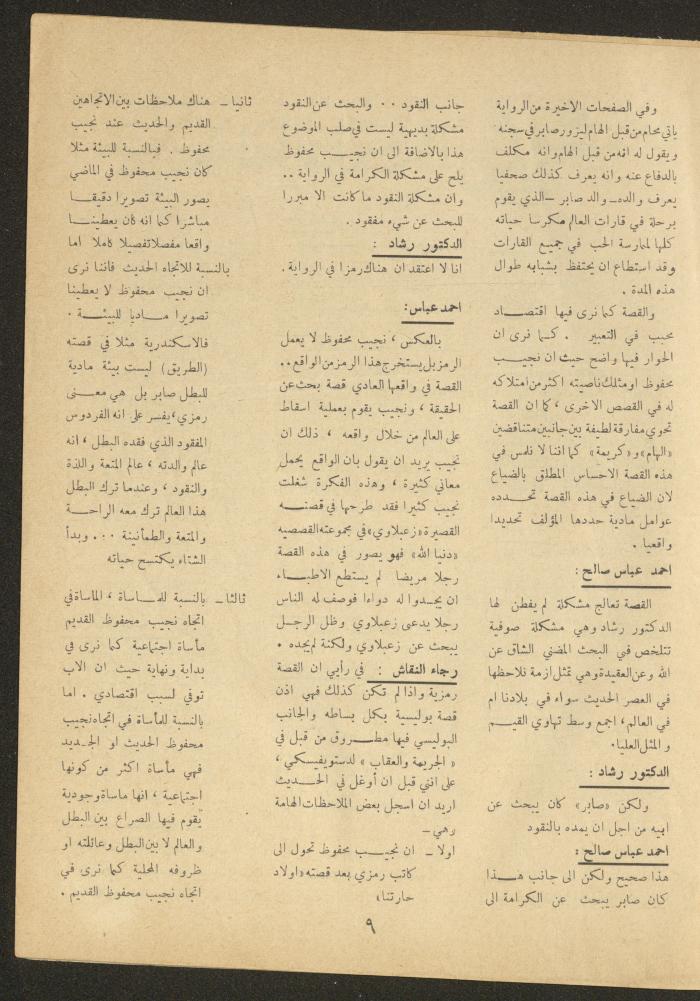 وفي الصفحات الاخيرة من الرواية
ياتي محام من قبل الهام ليزور صابر في سجنه
ويقول له انه من قبل الهام وانه مكلف
بالدفاع عنه وانه يعرف كذلك صحفيا
يعرف والده ــ والد صابر ــ الذي يقوم
برحلة في قارات العالم مكرسا حياته
كلها لممارسة الحب في جميع القارات
وقد استطاع ان يحتفظ بشبابه طوال
هذه المدة .
والقصة كما نرى فيها اقتصاد
محبب في التعبير . كما نرى ان
الحوار فيها واضح حيث ان نجيب
محفوظ اومتلك ناصيته اكثر من امتلاكه
له في القصص الاخرى ، كما ان القصة
تحوي مفارقة لطيفة بين جانبين متناقضين
«الهام» و«كريمة» كما اننا لا نلمس في
هذه القصة الاحساس المطلق بالضياع
لان الضياع في هذه القصة تحدده
عوامل مادية حددها المؤلف تحديدا
واقعيا .
احمد عباس صالح :
القصة تعالج مشكلة لم يفطن لها
الدكتور رشاد وهي مشكلة صوفية
تتلخص في البحث المضني الشاق عن
الله وعن العقيدة وهي تمثل ازمة نلاحظها
في العصر الحديث سواء في بلادنا ام
في العالم ، اجمع وسط تهاوي القيم
و المثل العليا .
الدكتور رشاد :
ولكن «صابر» كان يبحث عن
ابيه من اجل ان يمده بالنقود
احمد عباس صالح :
هذا صحيح ولكن الى جانب هذا
كان صابر يبحث عن الكرامة الى
جانب النقود .. والبحث عن النقود
مشكلة بديهية ليست في صلب الموضوع
هذا بالاضافة الى ان نجيب محفوظ
يلح على مشكلة الكرامة في الرواية ..
وان مشكلة النقود ما كانت الا مبررا
للبحث عن شيء مفقود .
الدكتور رشاد :
انا لا اعتقد ان هناك رمزا في الرواية .
احمد عباس :
بالعكس ، نجيب محفوظ لا يعمل
الرمز بل يستخرج هذا الرمز من الواقع ..
القصة في واقعها العادي قصة بحث عن
الحقيقة ، ونجيب يقوم بعملية اسقاط
على العالم من خلال واقعه ، ذلك ان
نجيب يريد ان يقول بان الواقع يحمل
معاني كثيرة ، وهذه الفكرة شغلت
نجيب كثيرا فقد طرحها في قصته
القصيرة «زعبلاوي» في مجموعته القصصيه
«دنيا الله» فهو يصور في هذه القصة
رجلا مريضا لم يستطع الاطباء
ان يجدوا له دواءا فوصف له الناس
رجلا يدعى زعبلاوي وظل الرجل
يبحث عن زعبلاوي ولكنه لم يجده .
رجاء النقاش : في رأيي ان القصة
رمزية واذا لم تكن كذلك فهي اذن
قصة بوليسية بكل بساطه والجانب
البوليسي فيها مطروق من قبل في
« الجريمة والعقاب » لدستويفيسكي ،
على انني قبل ان أوغل في الحديث
اريد ان اسجل بعض الملاحظات الهامة
وهي ــ
اولا ــ ان نجيب محفوظ تحول الى
كاتب رمزي بعد قصته «اولاد
حارتنا»
ثانيا ــ هناك ملاحظات بين الاتجاهين
القديم والحديث عند نجيب
محفوظ . فبالنسبة للبيئة مثلا
كان نجيب محفوظ في الماضي
يصور البيئة تصويرا دقيقا
مباشرا كما انه كان يعطينا
واقعا مفصلا تفصيلا كاملا اما
بالنسبة للاتجاه الحديث فاننا نرى
ان نجيب محفوظ لا يعطينا
تصويرا ماديا للبيئة .
فالاسكندرية مثلا في قصته
(الطريق) ليست بيئة مادية
للبطل صابر بل هي معنى
رمزي ، يفسر على انه الفردوس
المفقود الذي فقده البطل ، انه
عالم والدته ، عالم المتعة واللذة
والنقود ، وعندما ترك البطل
هذا العالم ترك معه الراحة
والمتعة والطمأنينة ... وبدأ
الشتاء يكتسح حياته
ثالثا ــ بالنسبة للمأساة ، المأساة في
اتجاه نجيب محفوظ القديم
مأساة اجتماعية كما نرى في
بداية ونهاية حيث ان الاب
توفي لسبب اقتصادي . اما
بالنسبة للمأساة في اتجاه نجيب
محفوظ الحديث او الجديد
فهي مأساة اكثر من كونها
اجتماعية ، انها مأساة وجودية
يقوم فيها الصراع بين البطل
والعالم لا بين البطل وعائلته او
ظروفه المحلية كما نرى في
اتجاه نجيب محفوظ القديم .
٩